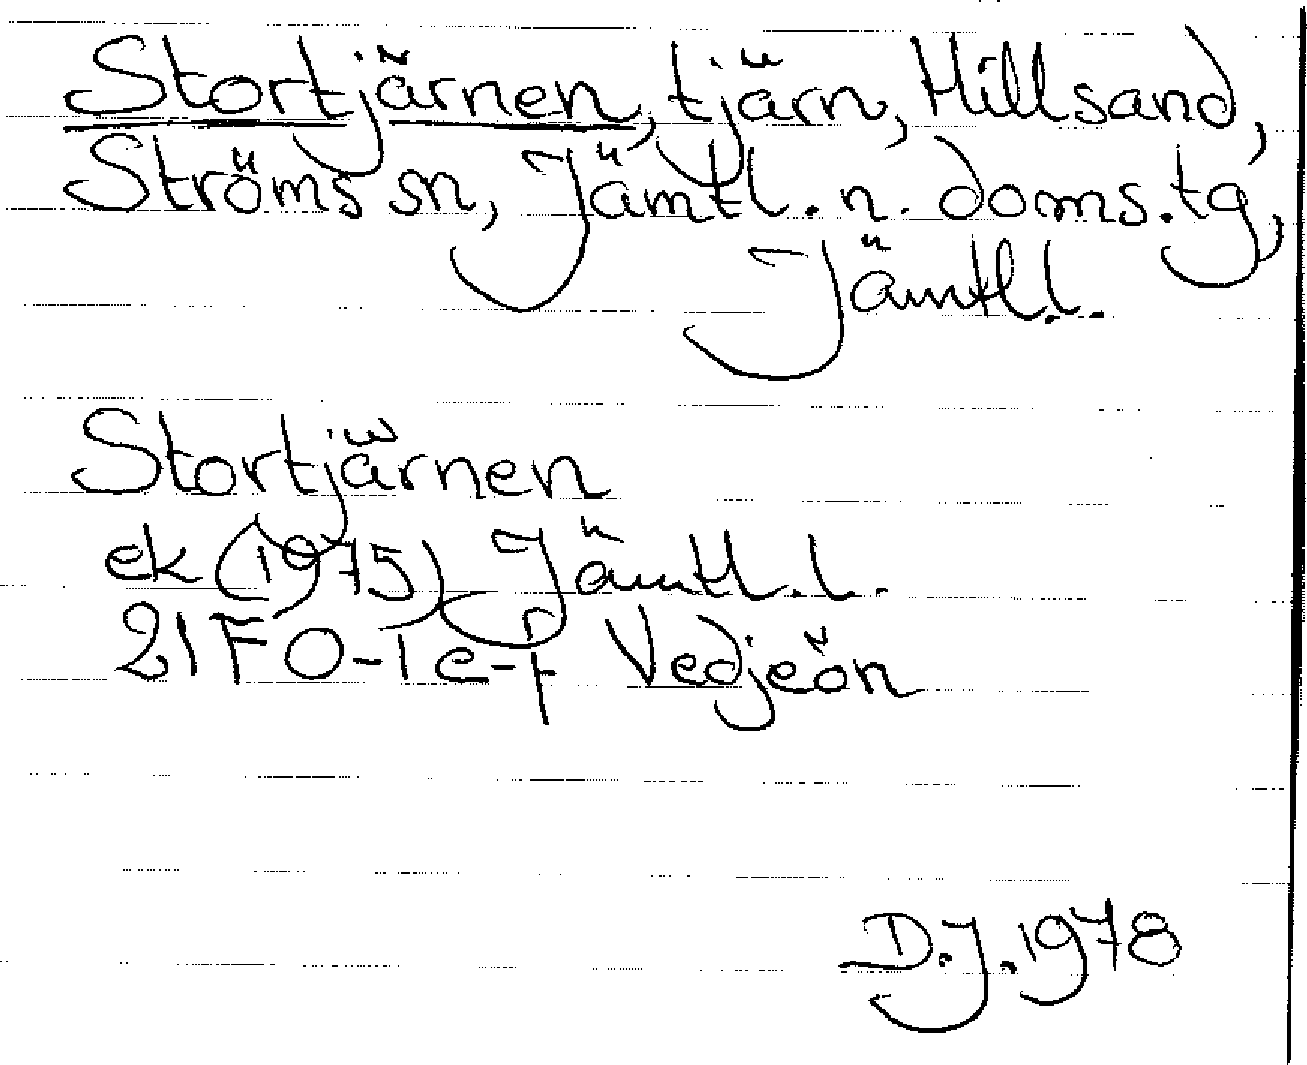 Stortjärnen, tjärn, Hillsand,
Ströms sn, Jämtl. n. doms. tg,
Jämtl. l.
Stortjärnen
ek (1975) Jämtl. l.
21F 0-1 e-f Vedjeön
D.J. 1978